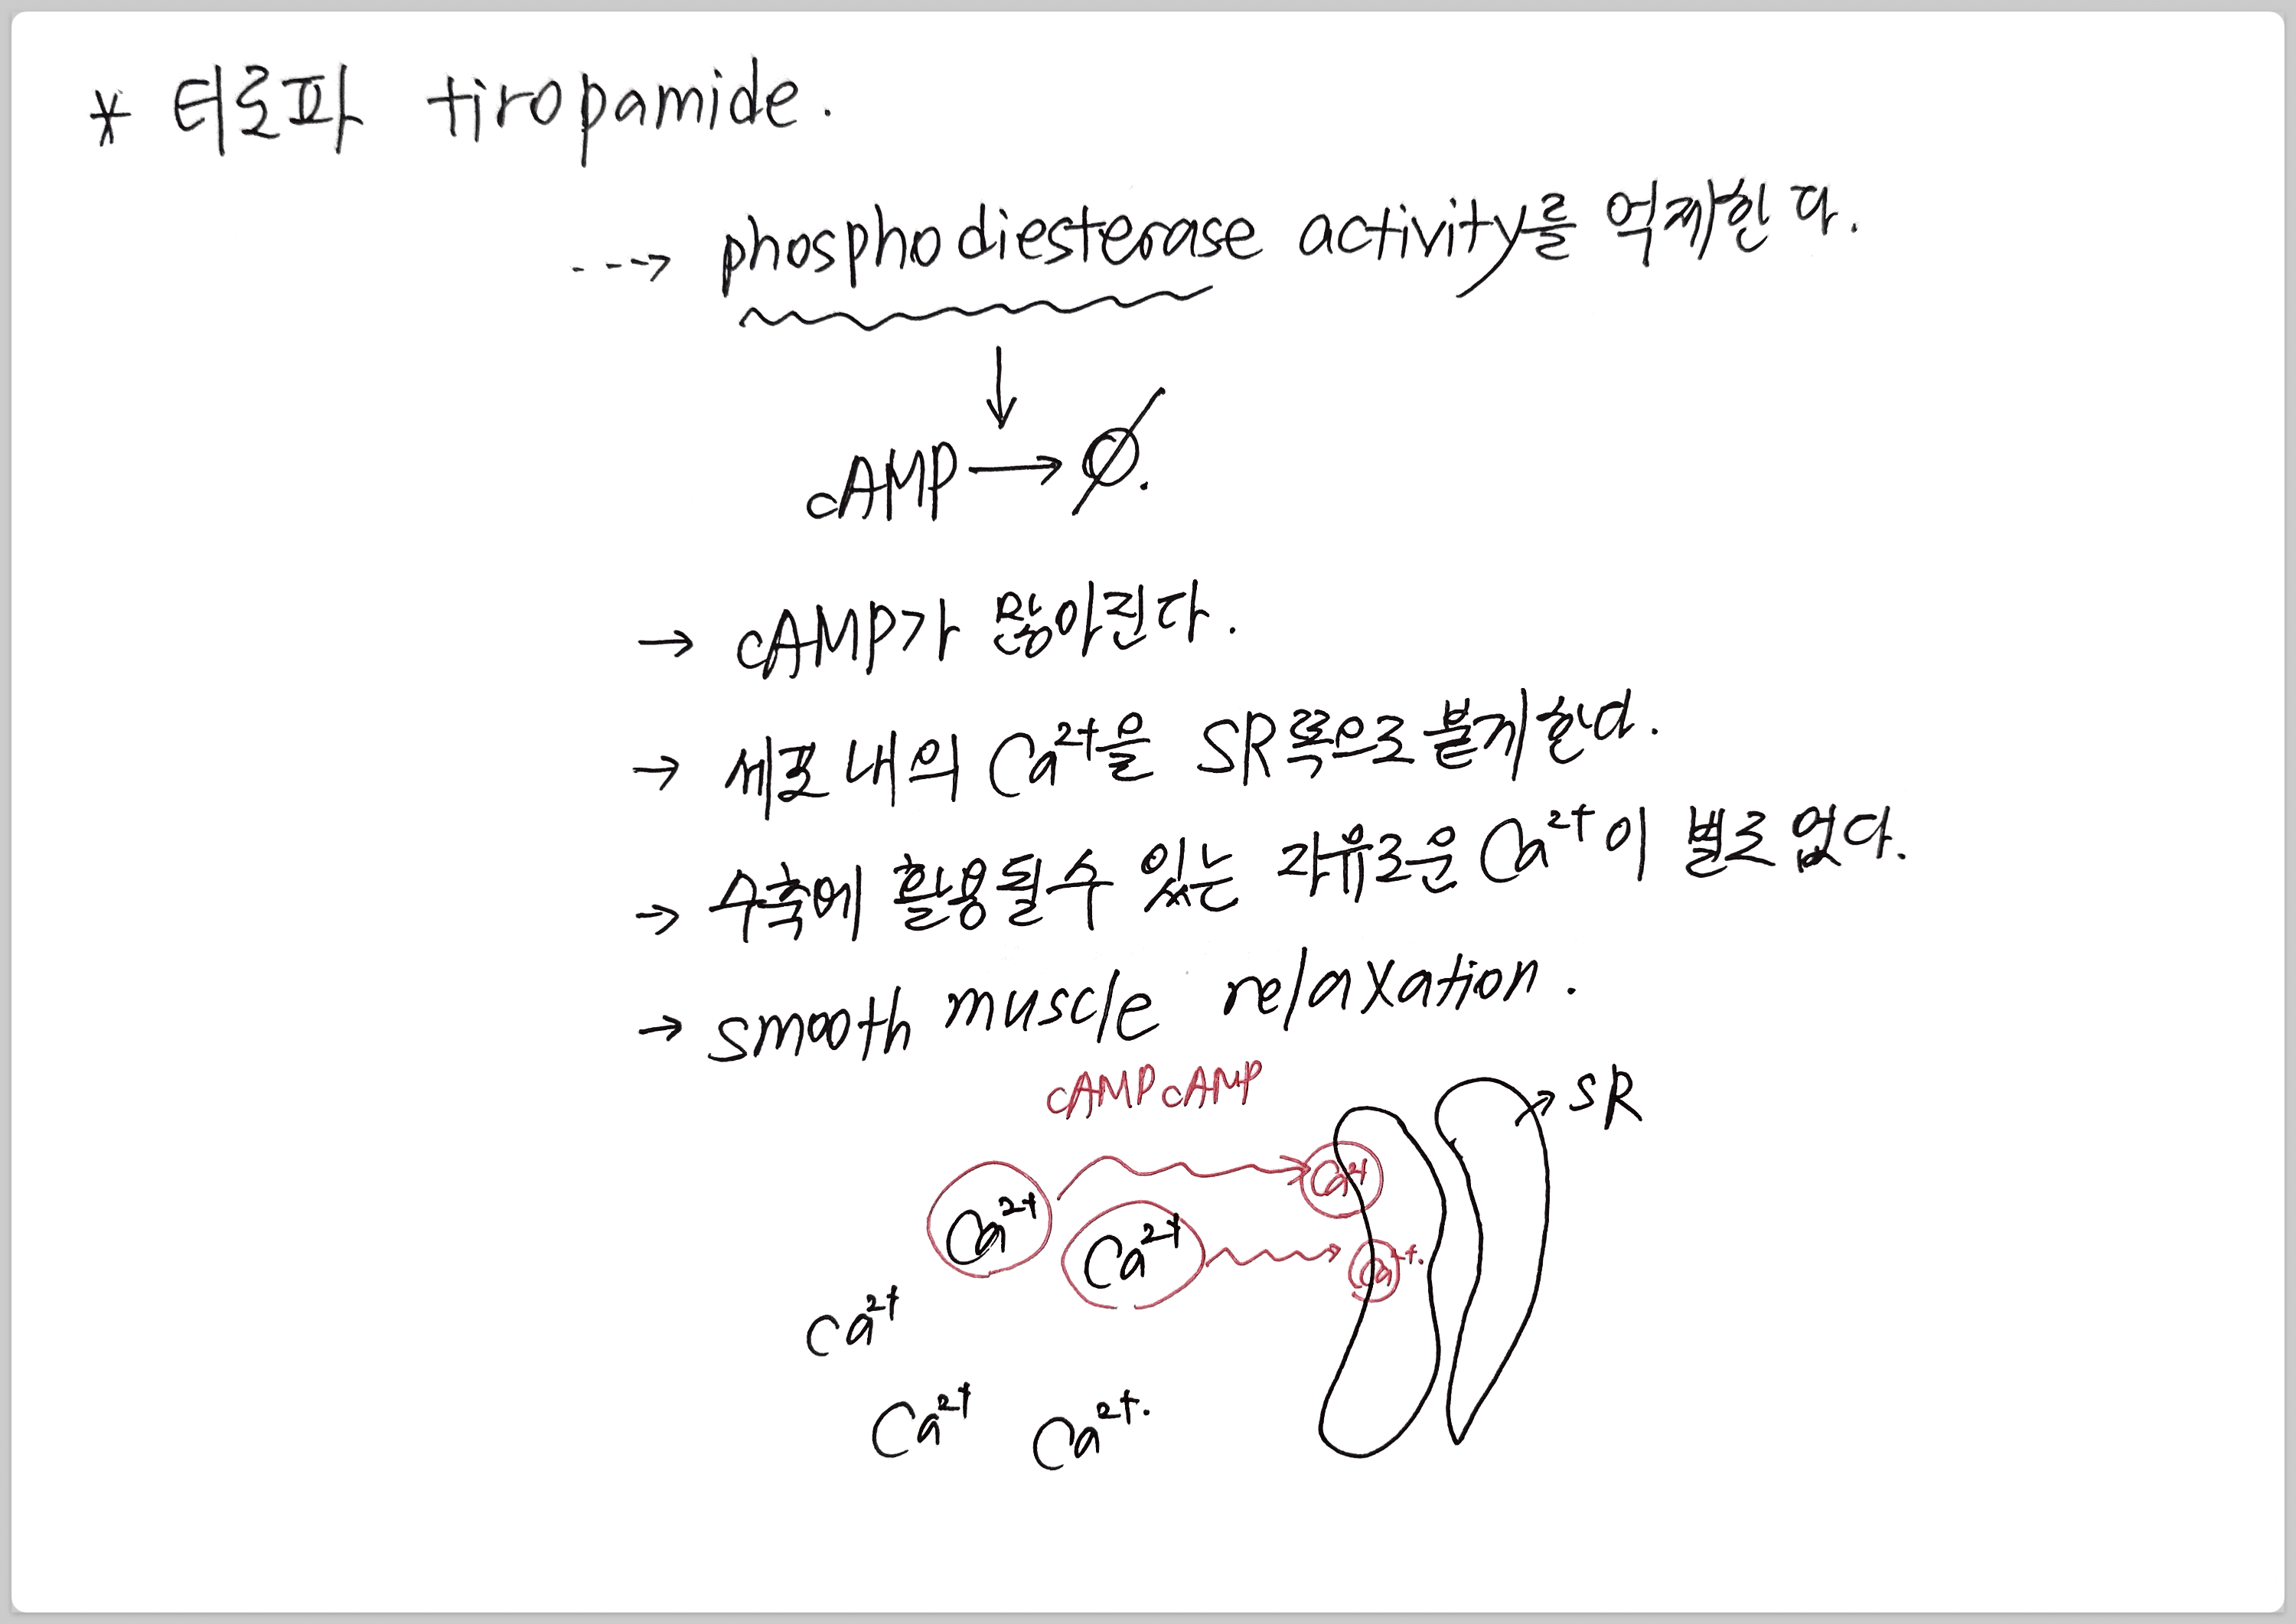 * 티로파 tiropamide.
---> phosphodiesterase activity를 억제한다.
↓
cAMP → ∅.
→ cAMP가 많아진다.
→ 세포 내의 Ca²⁺을 SR쪽으로 붙게한다.
→ 수축에 활용될 수 있는 자유로운 Ca²⁺이 별로 없다.
→ smooth muscle relaxation.
cAMP cAMP
SR
Ca²⁺
Ca²⁺
Ca²⁺
Ca⁺.
Ca²⁺
Ca²⁺
Ca²⁺.